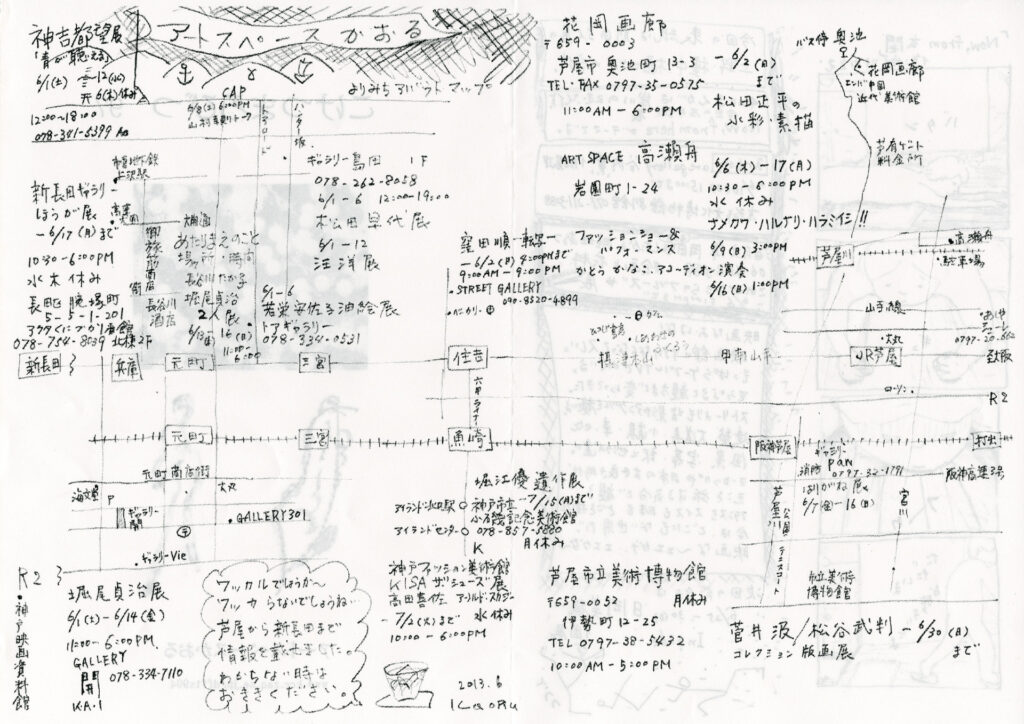 神吉都望展
6/1(土)－12(水)
6(木)休み
12:00～18:00
078-341-5399
アートスペース かおる
よりみちアバウトマップ。
CAP
6/8(土) 6:00PM
トアロード
ハンター坂
ギャラリー島田 1F
078-262-8058
6/1-6 12:00-19:00
松田早代展
6/1-12
汪洋展
市営地下鉄
上沢駅
新長田ギャラリー
ほうが展
－6/17(月)まで
10:30-6:00PM
水 木 休み
長田区腕塚町
5-5-1-201
アスタくにづか1番館
北棟2F
078-754-8039
高速
大開
大開通
長谷川
酒店
あたりまえのこと
場所・時間
長谷川たか子
堀尾貞治
2人展
6/13(木) 16(日)
11:00-
6:00
6/1-6
若栄安佐子油絵展
トアギャラリー
078-334-0531
花岡画廊
〒659-0003
芦屋市奥池町13-3 －6/2(日)
まで
TEL・FAX 0797-35-0575
11:00AM-6:00PM
松田正平の
水彩・素描
バス停 奥池
花岡画廊
エンバ中国
近代美術館
芦有ゲート
料金所
ART SPACE 高瀬舟
岩園町1-24
6/6(木)-17(月)
10:30-6:00PM
水 休み
サメカワ・ハルゲリ・ハラミイシ!!
窪田順・転写－
－6/2(日) 4:00PMまで
9:00AM-9:00PM
・STREET GALLERY
090-8520-4899
ファッションショー&
パフォーマンス
かとうかなこ。アコーディオン演奏
6/9(日) 3:00PM
6/16(日) 1:00PM
芦屋川
・高瀬舟
・駐車場
山手幹線
大丸
摂津本山
甲南山手
JR芦屋
至大阪
新長田
兵庫
元町
三宮
住吉
六甲ライナー
ローソン
R2
元町
三宮
魚崎
阪神芦屋
打出
元町商店街
大丸
海文堂
P
ギャラリー
開
・GALLERY301
・ギャラリーVie
ギャラリー
PAN
消防 0797-32-1791
はりがね展
6/7(金)-16(日)
阪神高架3号
芦屋川
公園
テニスコート
宮川
堀江優遺作展
アイランド北口駅
神戸市立
－7/15(月)まで
小磯記念美術館
アイランドセンター
078-857-5880
月休み
K
R2
・神戸映画資料館
堀尾貞治展
6/1(土)-6/14(金)
11:00-6:00PM.
GALLERY
開
078-334-7110
KA・I
ワッカルでしょうか～
ワッカらないでしょうねぃ
芦屋から新長田まで
情報を載せました。
わからない時は
おききください。
神戸ファッション美術館
KISA ザ・シューズ展
高田喜佐
－7/2(火)まで
水 休み
10:00-6:00PM
2013.6
Kaoru
芦屋市立美術博物館
〒659-0052
月休み
伊勢町12-25
TEL 0797-38-5432
10:00AM-5:00PM
市立美術
博物館
菅井汲/松谷武判－6/30(日)
まで
コレクション版画展